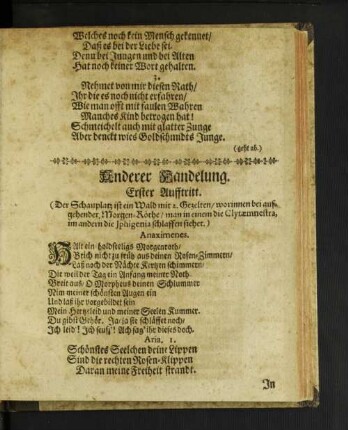 Welches noch kein Mensch gekennet/
Daß es bei der Liebe sei.
Denn bei Jungen und bei Alten
Hat noch keiner Wort gehalten.
3.
Nehmet von mir diesen Rath/
Ihr die es noch nicht erfahren/
Wie man offt mit faulen Wahren
Manches Kind betrogen hat!
Schmeichelt auch mit glatter Zunge
Aber denckt wies Goldschmidts Junge.
(geht ab.)
Anderer Handelung.
Erster Aufftritt.
(Der Schauplatz ist ein Wald mit 2. Gezelten/ worinnen bei auff-
gehender Morgen-Röthe/ man in einem die Clytæmnestra,
im andern die Iphigenia schlaffen siehet.)
Anaximenes.
Halt ein holdseeligs Morgenroth/
Brich nicht zu früh aus deinen Rosen-Zimmern/
Laß noch der Nächte Kertzen schimmern/
Die weil der Tag ein Anfang meiner Noth.
Breit aus/ O Morpheus deinen Schlummer
Nim meiner schönsten Augen ein
Und laß ihr vorgebildet sein
Mein Hertzleid und meiner Seelen Kummer.
Du gibst Gehör. Ja/ ja sie schläffet noch/
Ich leid! Ich seufz! Ach sag' ihr dieses doch.
Aria. 1.
Schönstes Seelchen deine Lippen
Sind die rechten Rosen-Klippen
Daran meine Freiheit strandt.
In